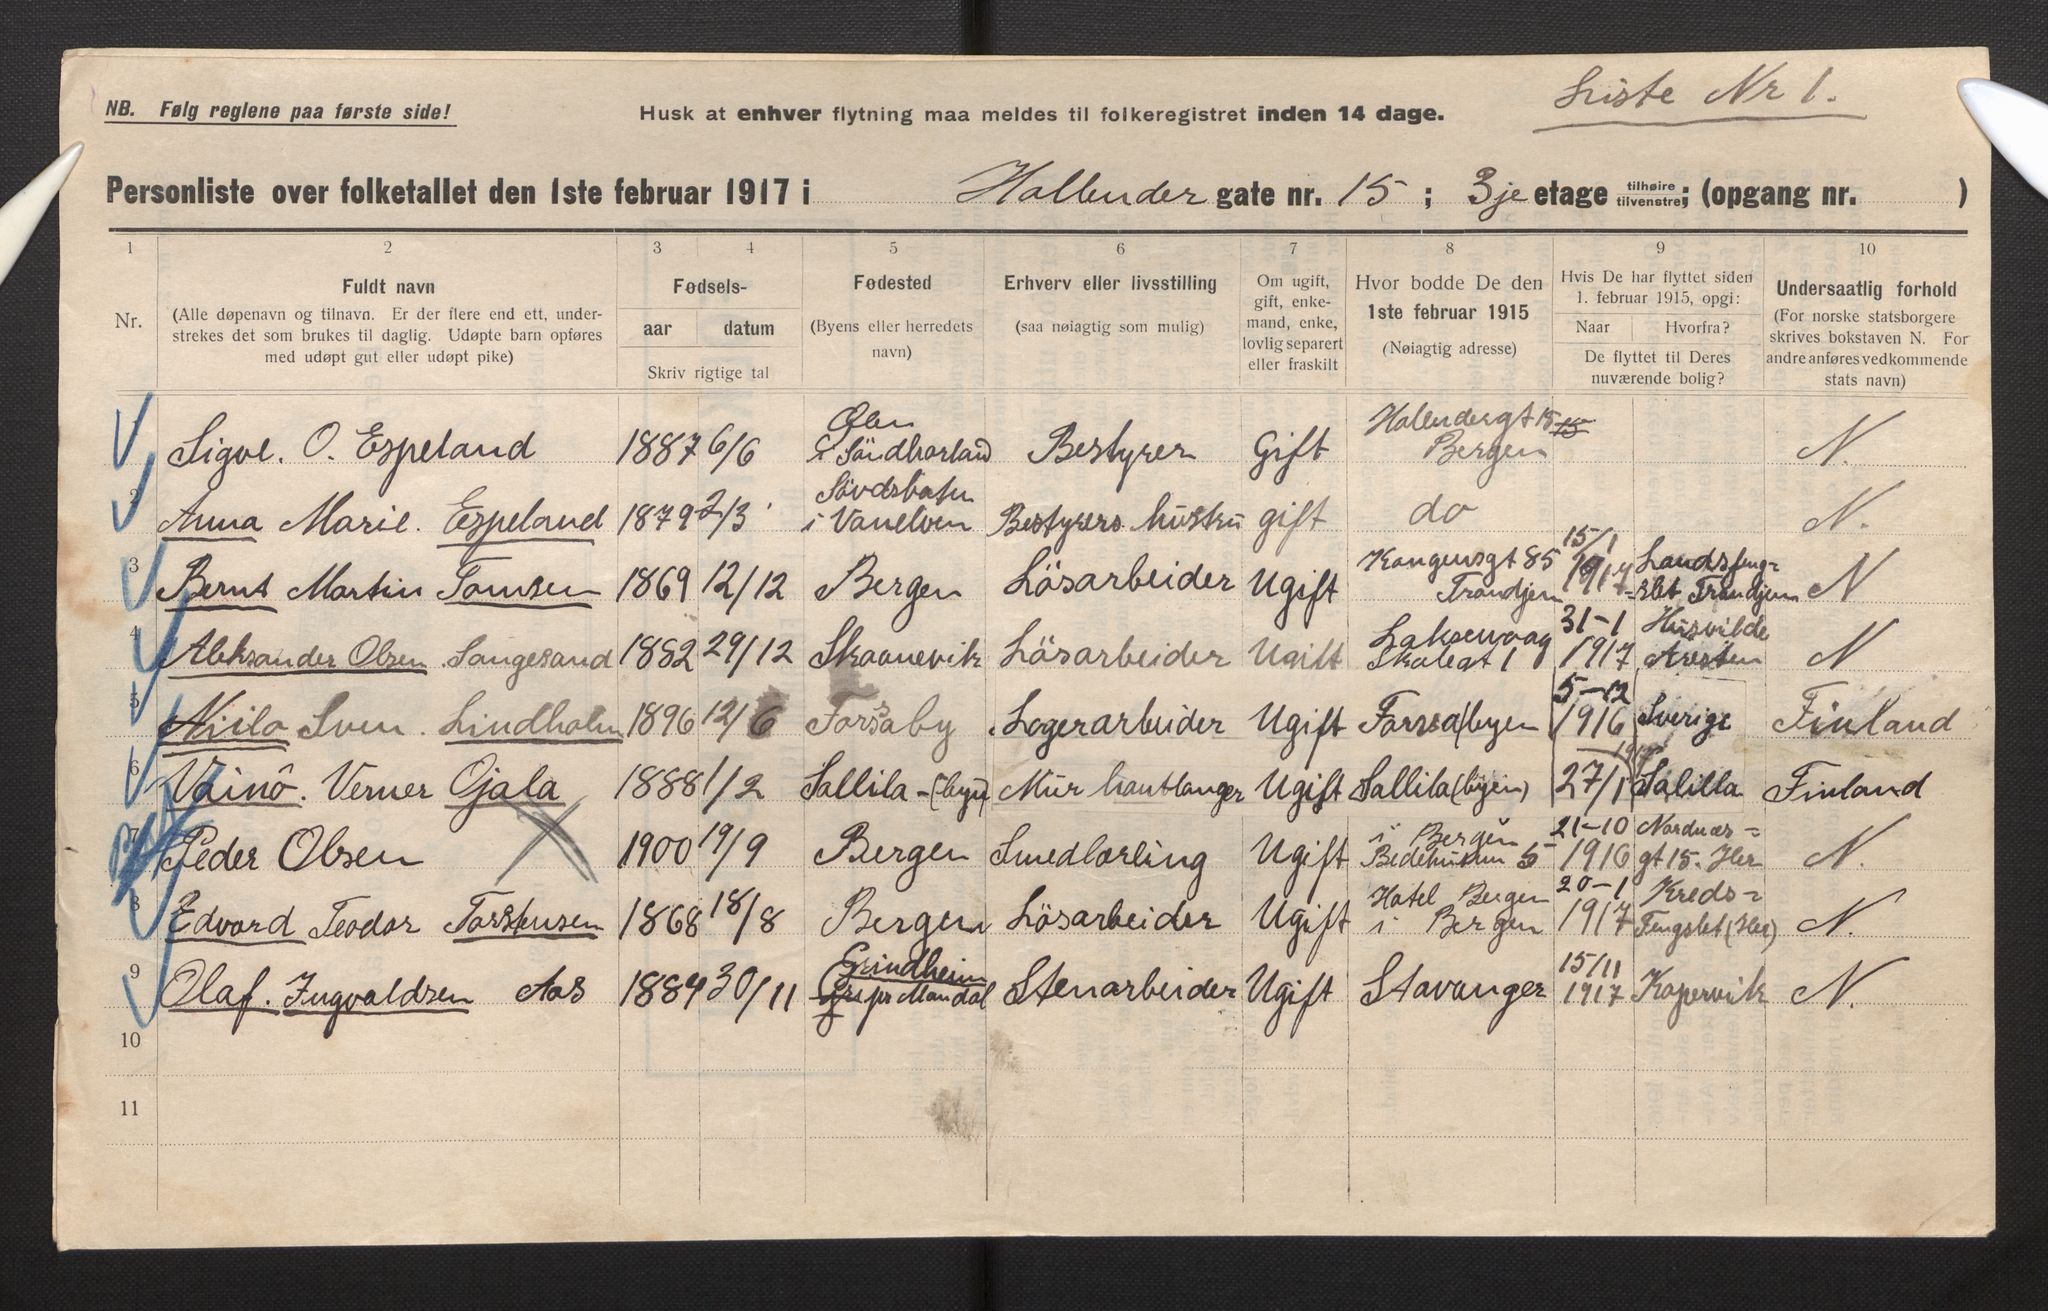 Liste Nr 1.
NB. Følg reglene paa første side!
Husk at enhver flytning maa meldes til folkeregistret inden 14 dage.
Personliste over folketallet den 1ste februar 1917 i Hollender gate nr. 15 ; 3je etage tilhøire tilvenstre; (opgang nr. )
1 2 3 4 5 6 7 8 9 10
Nr.
Fuldt navn
(Alle døpenavn og tilnavn. Er der flere end ett, under-
strekes det som brukes til daglig. Udøpte barn opføres
med udøpt gut eller udøpt pike)
Fødsels-
aar datum
Skriv rigtige tal
Fødested
(Byens eller herredets
navn)
Erhverv eller livsstilling
(saa nøiagtig som mulig)
Om ugift,
gift, enke-
mand, enke,
lovlig separert
eller fraskilt
Hvor bodde De den
1ste februar 1915
(Nøiagtig adresse)
Hvis De har flyttet siden
1. februar 1915, opgi:
Naar Hvorfra?
De flyttet til Deres
nuværende bolig?
Undersaatlig forhold
(For norske statsborgere
skrives bokstaven N. For
andre anføres vedkommende
stats navn)
Sigvl. O. Espeland 1887 6/6 Ølen i Söndhorland Bestyrer Gift Hollendergt 15 15 Bergen N.
2 Anna Marie. Espeland 1879 2/3 i Vanelven Bestyrers hustru gift do N.
3 Bernt Martin Tomsen 1869 12/12 Bergen Lösarbeider Ugift Kongensgt 85 Trondjem 15/1 1917 Landsfeng= slet Trondjem N
4 Aleksander Olsen Sangesand 1882 29/12 Skaanevik Lösarbeider Ugift Laksevaag Skolegt 1 31-1 1917 Husvilde Aresten N
5 Niilo Sven. Lindholm 1896 12/6 Forsaby Lagerarbeider Ugift Forssa(byen 5-12 1916 Sverige Finland
6 Väinö. Verner Ojala 1888 1/2 Sallila-(byn) Mur hantlanger Ugift Sallila (byen) 27/1 Salilla Finland
7 Peder Olsen 1900 19/9 Bergen Smedlærling Ugift i Bergen Bedehusmn 5 21-10 1916 Nordnær= gt 15. Her N.
8 Edvard Teodor Torstensen 1868 18/8 Bergen Lösarbeider Ugift Hotel Bergen i Bergen 20-1 1917 Kreds= Fengslet (Her) N.
9 Olaf. Ingvaldsen Aas 1884 30/11 Grindheim pr Mandal Stenarbeider Ugift Stavanger 15/11 1917 Kopervik N.
10
11